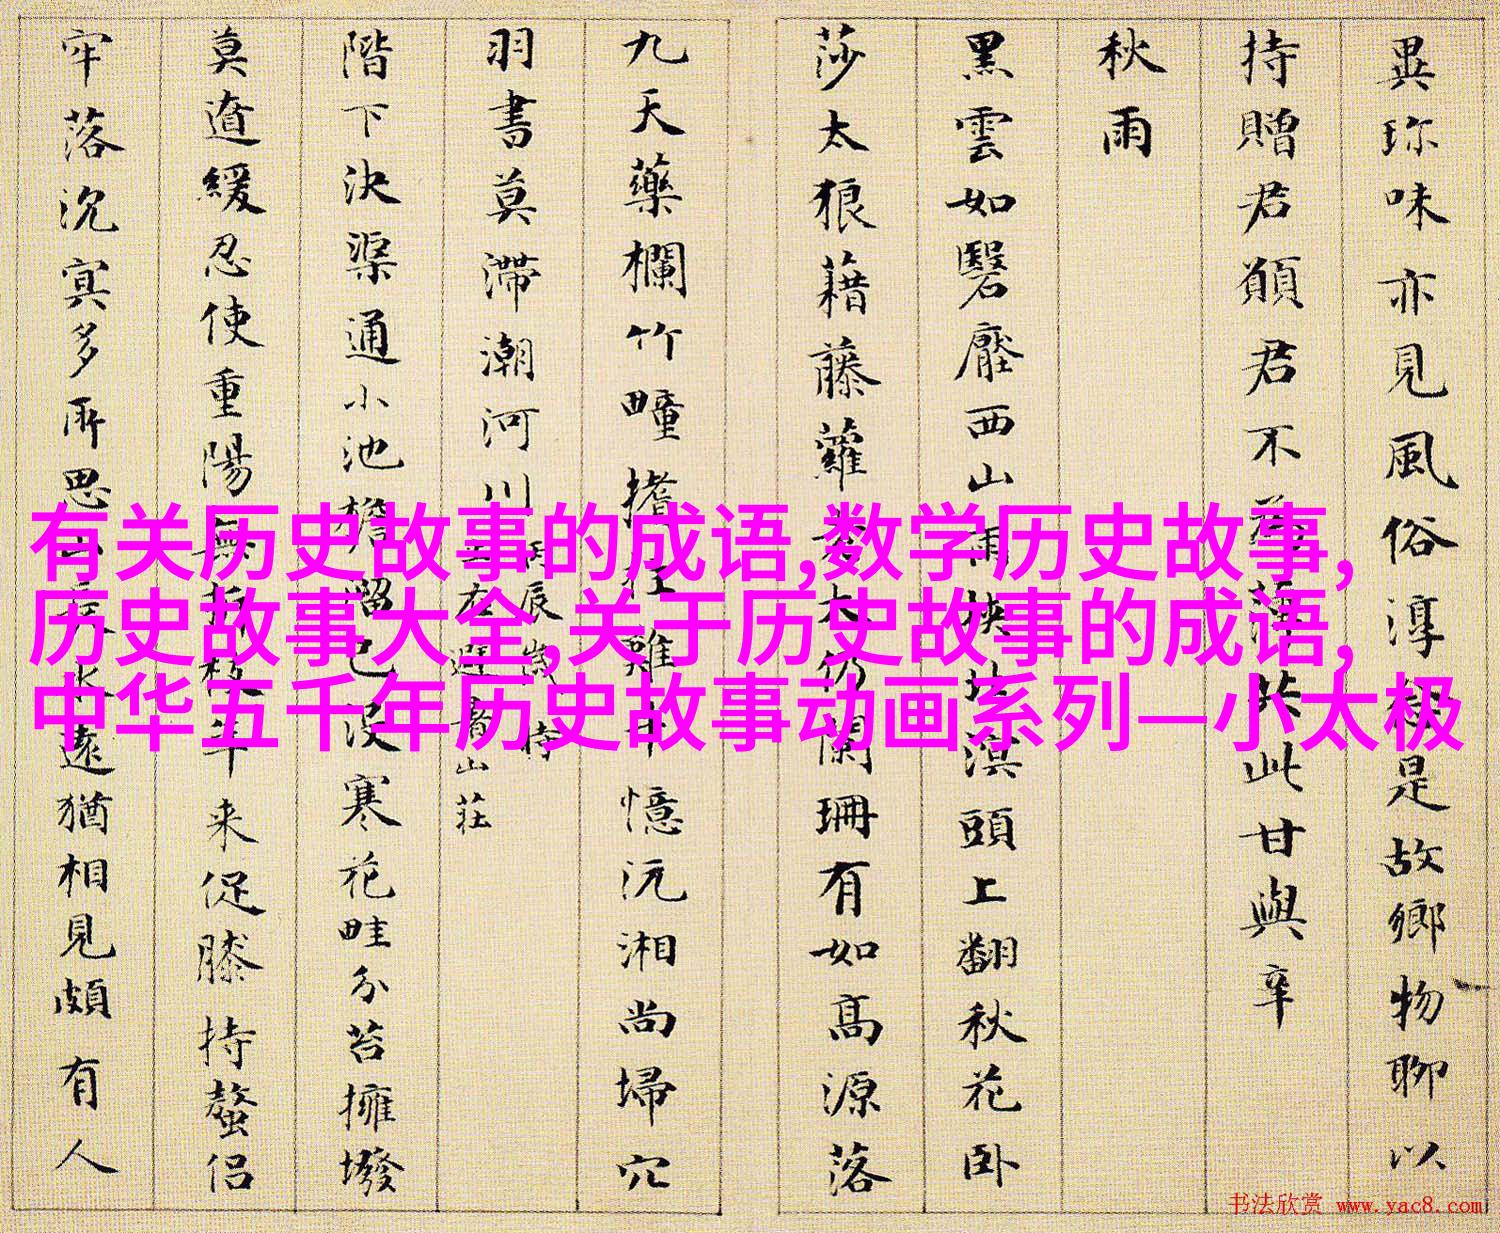 異珎味亦見風俗淳
是故鄉物聊以
持贈君願君不
此甘與辛
秋雨
黑雲如䃜壓西山雨
頭上翻秋花卧
莎太狼藉藤蘿
闌珊有如高源落
九天藥欄竹疃
憶沅湘尚埽穴
羽書莫滯潮河川
山莊
階下決渠通小池
寒花畦分苔擁墢
莫遒緩忍使重陽
来促膝持螯侣
牢落沉冥多所思
遠猶相見頗有人
有关历史故事的成语,数学历史故事,
历史故事大全,关于历史故事的成语,
中华五千年历史故事动画系列—小太极
书法欣赏 www.yac8.com